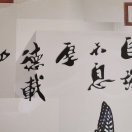 自强
不息
厚
德載